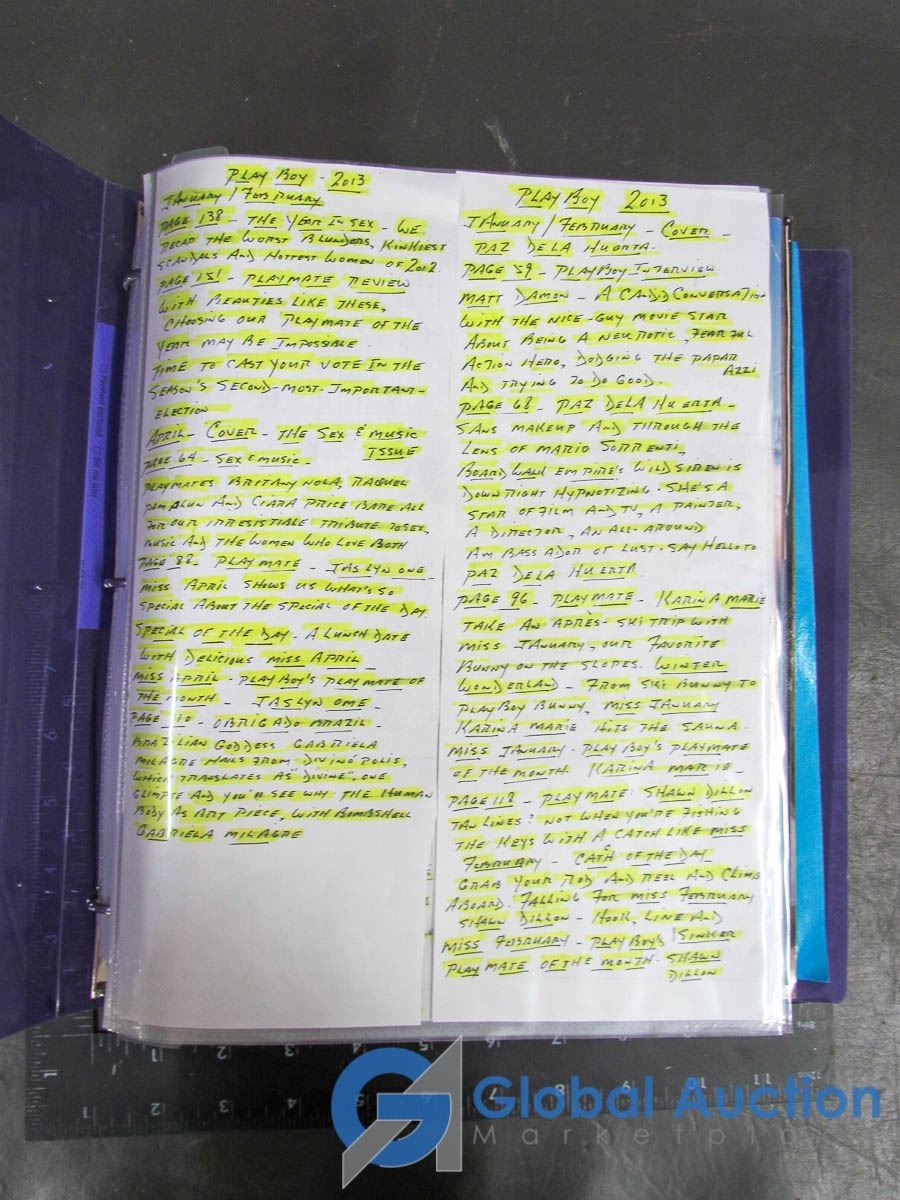 PLAY BOY - 2013
JANUARY / FEBRUARY
PAGE 138 - THE YEAR IN SEX - WE
RECAP THE WORST BLUNDERS, KINKIEST
SCANDALS AND HOTTEST WOMEN OF 2012.
PAGE 151 - PLAYMATE REVIEW
WITH BEAUTIES LIKE THESE,
CHOOSING OUR PLAYMATE OF THE
YEAR MAY BE IMPOSSIBLE.
TIME TO CAST YOUR VOTE IN THE
SEASON'S SECOND-MOST-IMPORTANT-
ELECTION
APRIL - COVER - THE SEX & MUSIC
ISSUE
PAGE 64 - SEX & MUSIC.
PLAYMATES BRITANY NOLA, RAQUEL
POMPLUN AND CIARA PRICE BARE ALL
FOR OUR IRRESISTIBLE TRIBUTE TO SEX,
MUSIC AND THE WOMEN WHO LOVE BOTH
PAGE 82 - PLAYMATE - JASLYN OME
MISS APRIL SHOWS US WHAT'S SO
SPECIAL ABOUT THE SPECIAL OF THE DAY.
SPECIAL OF THE DAY - A LUNCH DATE
WITH DELICIOUS MISS APRIL
MISS APRIL - PLAYBOY'S PLAYMATE OF
THE MONTH - JASLYN OME -
PAGE 110 - OBRIGADO BRAZIL -
BRAZILIAN GODDESS GABRIELA
MILAGRE HAILS FROM DIVINÓPOLIS,
WHICH TRANSLATES AS "DIVINE", ONE
GLIMPSE AND YOU'LL SEE WHY: THE HUMAN
BODY AS ART PIECE, WITH BOMBSHELL
GABRIELA MILAGRE
PLAY BOY 2013
JANUARY / FEBRUARY - COVER -
PAZ DE LA HUERTA.
PAGE 59 - PLAYBOY INTERVIEW
MATT DAMON - A CANDID CONVERSATION
WITH THE NICE-GUY MOVIE STAR
ABOUT BEING A NEUROTIC, FEARFUL
ACTION HERO, DODGING THE PAPAR
AZZI
AND TRYING TO DO GOOD.
PAGE 68 - PAZ DE LA HUERTA -
SANS MAKEUP AND THROUGH THE
LENS OF MARIO SORRENTI,
BOARDWALK EMPIRE'S WILD SIREN IS
DOWNRIGHT HYPNOTIZING. SHE'S A
STAR OF FILM AND TV, A PAINTER,
A DIRECTOR, AN ALL-AROUND
AMBASSADOR OF LUST. SAY HELLO TO
PAZ DE LA HUERTA
PAGE 96 - PLAYMATE - KARINA MARIE
TAKE AN APRÈS-SKI TRIP WITH
MISS JANUARY, OUR FAVORITE
BUNNY ON THE SLOPES. WINTER
WONDERLAND - FROM SKI BUNNY TO
PLAYBOY BUNNY, MISS JANUARY
KARINA MARIE HITS THE SAUNA.
MISS JANUARY - PLAY BOY'S PLAYMATE
OF THE MONTH KARINA MARIE -
PAGE 118 - PLAYMATE: SHAWN DILLON
TAN LINES? NOT WHEN YOU'RE FISHING
THE KEYS WITH A CATCH LIKE MISS
FEBRUARY - CATCH OF THE DAY
GRAB YOUR ROD AND REEL AND CLIMB
ABOARD. FALLING FOR MISS FEBRUARY
SHAWN DILLON - HOOK, LINE AND
SINKER
MISS FEBRUARY - PLAY BOY'S
PLAYMATE OF THE MONTH. SHAWN
DILLON
Global Auction